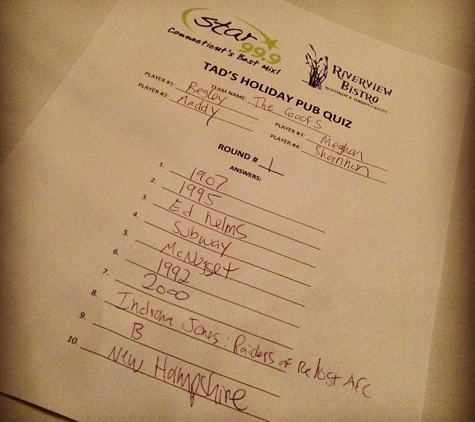 star 99.9
Connecticut's Best Mix!
RIVERVIEW
BISTRO
TAD'S HOLIDAY PUB QUIZ
TEAM NAME: The Goofs
PLAYER #1: Begley
PLAYER #2: Maddy
PLAYER #3: Meghan
PLAYER #4: Shannon
ROUND # 1
ANSWERS:
1. 1907
2. 1995
3. Ed helms
4. Subway
5. McNugget
6. 1992
7. 2000
8. Indiana Jones: Raiders of the lost Arc
9. B
10. New Hampshire